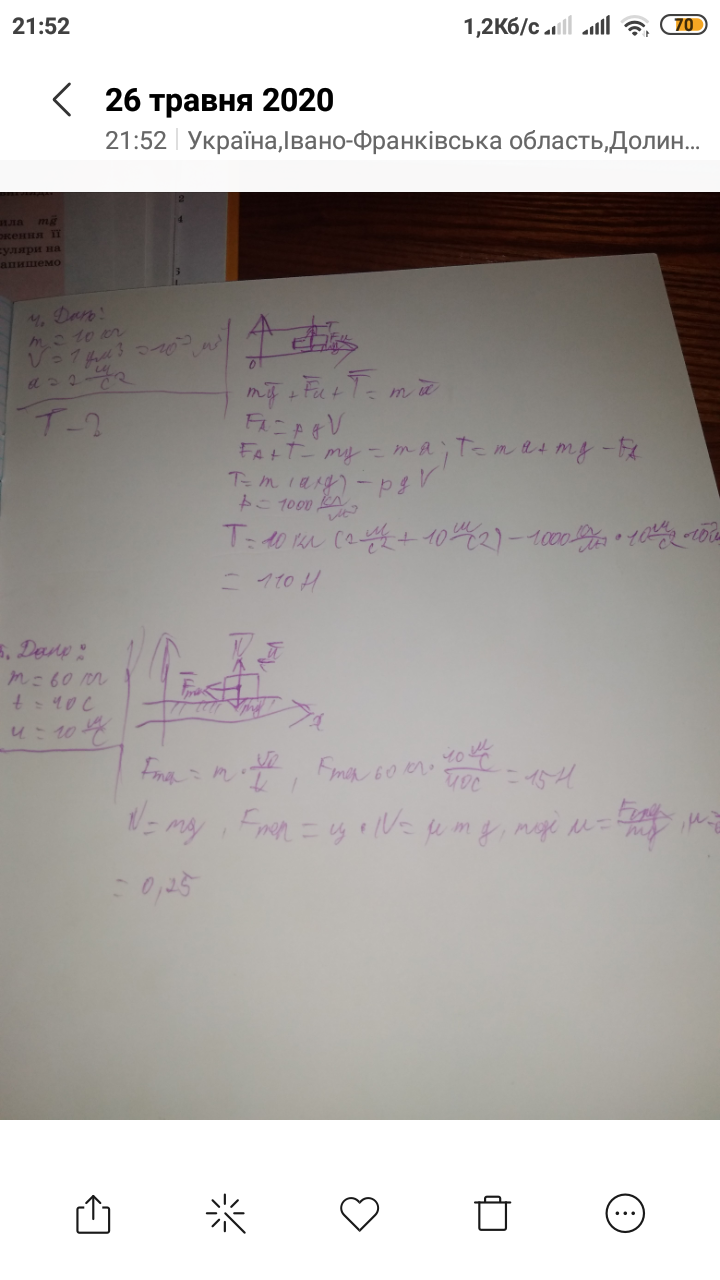 21:52
1,2Кб/с
70
26 травня 2020
21:52 Україна,Івано-Франківська область,Долин...
ила mg
ження її
куляри на
апишемо
2
4
3
4. Дано:
m = 10 кг
V = 1 дм3 = 10-3 м3
a = 2 м/с2
T - ?
T
0
mg + FA + T = ma
FA = pgV
FA + T - mg = ma; T = ma + mg - FA
T = m(a+g) - pgV
p = 1000 кг/м3
T = 10 кг (2 м/с2 + 10 м/с2) - 1000 кг/м3 • 10 м/с2
= 110 Н
5. Дано:
m = 60 кг
t = 40 с
u = 10 м/с
N
a
Fтер
mg
x
Fтер = m • v0/t, Fтер 60 кг • 10 м/с / 40с = 15 Н
N = mg, Fтер = μ • N = μmg, тоді μ = Fтер/mg, μ =
= 0,25